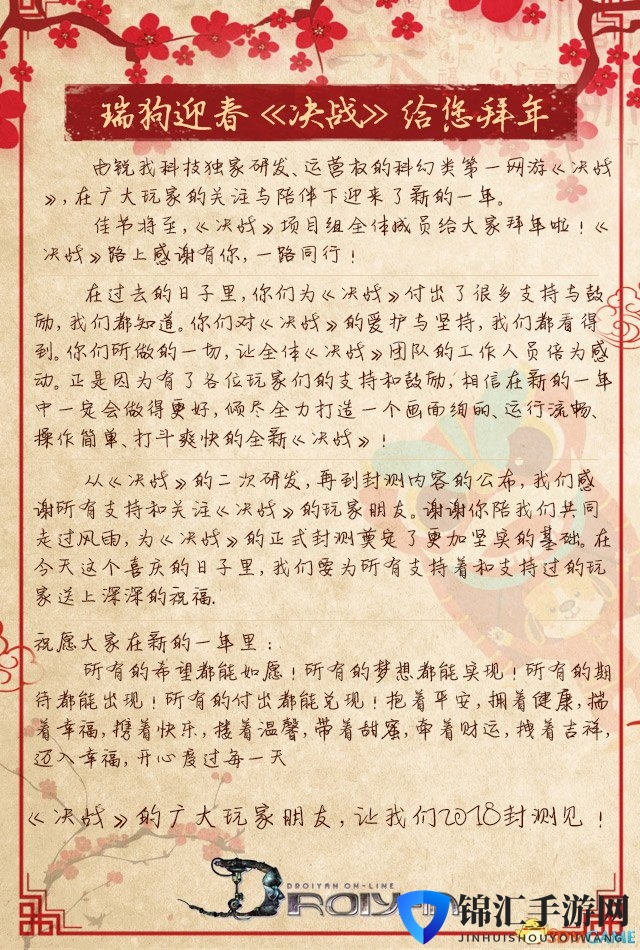 瑞狗迎春《决战》给您拜年
由锐我科技独家研发、运营权的科幻类第一网游《决战
》,在广大玩家的关注与陪伴下迎来了新的一年。
佳节将至,《决战》项目组全体成员给大家拜年啦!《
决战》路上感谢有你,一路同行!
在过去的日子里,你们为《决战》付出了很多支持与鼓
励,我们都知道。你们对《决战》的爱护与坚持,我们都看得
到。你们所做的一切,让全体《决战》团队的工作人员倍为感
动。正是因为有了各位玩家们的支持和鼓励,相信在新的一年
中一定会做得更好,倾尽全力打造一个画面绚丽、运行流畅、
操作简单、打斗爽快的全新《决战》!
从《决战》的二次研发,再到封测内容的公布,我们感
谢所有支持和关注《决战》的玩家朋友。谢谢你陪我们共同
走过风雨,为《决战》的正式封测奠定了更加坚实的基础。在
今天这个喜庆的日子里,我们要为所有支持着和支持过的玩
家送上深深的祝福.
祝愿大家在新的一年里:
所有的希望都能如愿!所有的梦想都能实现!所有的期
待都能出现!所有的付出都能兑现!抱着平安,拥着健康,揣
着幸福,携着快乐,搂着温馨,带着甜蜜,牵着财运,拽着吉祥,
迈入幸福,开心度过每一天
《决战》的广大玩家朋友,让我们2018封测见!
DROIYAN ON-LINE
锦汇手游网
JINHUISHOUYOUWANG
GAME